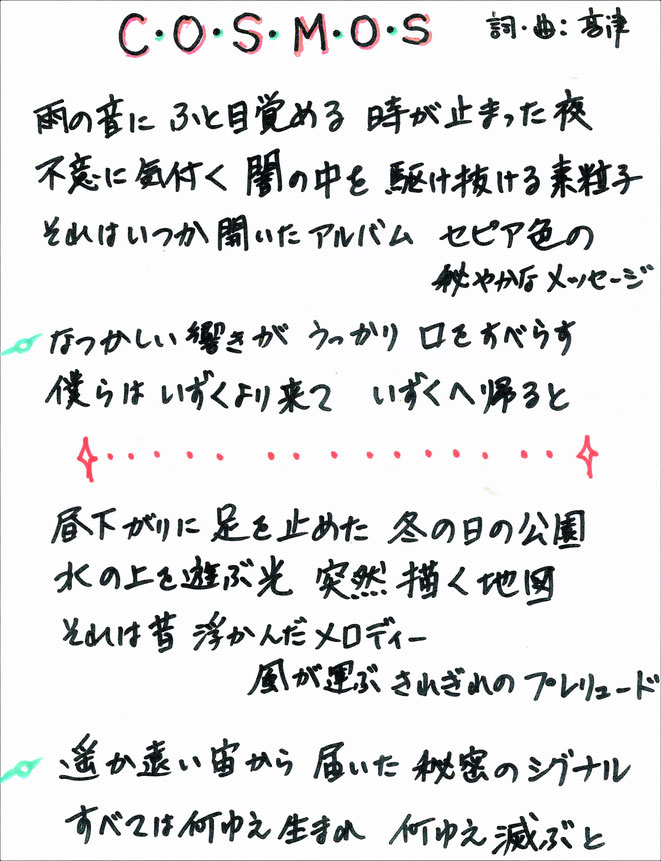 C・O・S・M・O・S 詞・曲：高津
雨の音に ふと目覚める 時が止まった夜
不意に気付く 闇の中を 駆け抜ける素粒子
それはいつか開いたアルバム セピア色の
秘やかなメッセージ
なつかしい響きが うっかり 口をすべらす
僕らは いずくより来て いずくへ帰ると
昼下がりに 足を止めた 冬の日の公園
水の上を遊ぶ光 突然 描く地図
それは昔 浮かんだメロディー
風が運ぶ きれぎれの プレリュード
遥か遠い宙から 届いた 秘密のシグナル
すべては何ゆえ生まれ 何ゆえ滅ぶと